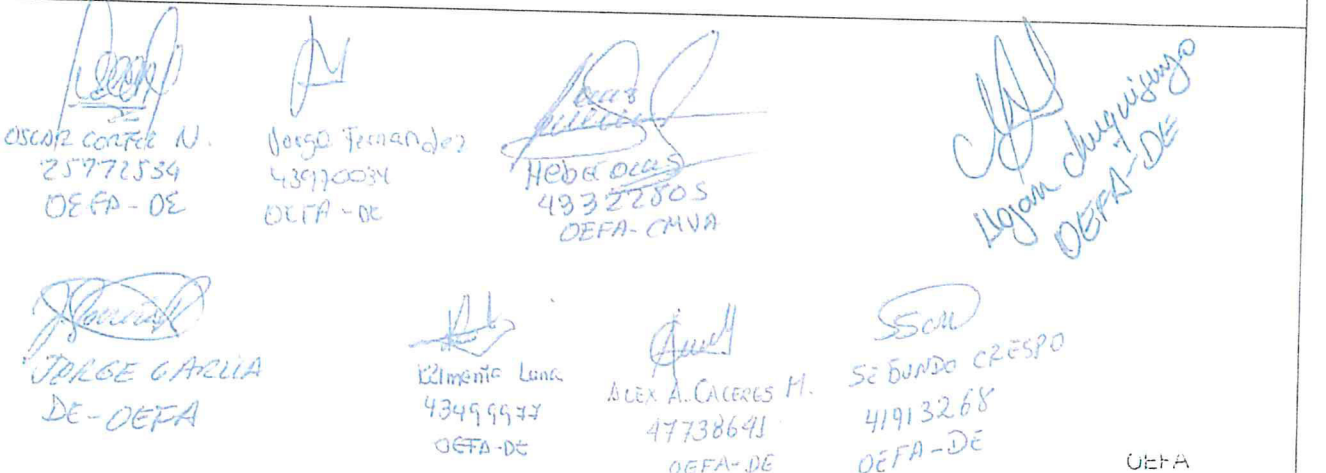 OSCAR CORTEZ N.
25772534
OEFA-DE
Jorge Fernandez
43970034
OEFA-DE
Heber ocas
43322505
OEFA-CMVA
Chuquizungo
OEFA-DE
JORGE GARCIA
DE-OEFA
Luna
43499977
OEFA-DE
ALEX A. CACERES M.
47738641
OEFA-DE
SEGUNDO CRESPO
41913268
OEFA-DE
OEFA